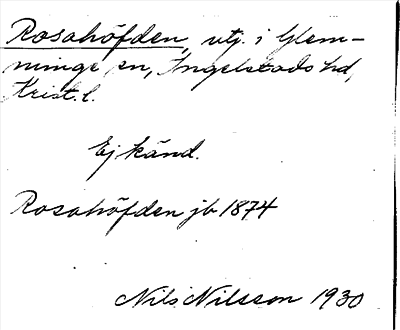 Rosahöfden, utj. i Glem-
minge sn, Ingelstads hd,
Krist. l.
Ej känd.
Rosahöfden jb 1874
Nils Nilsson 1930